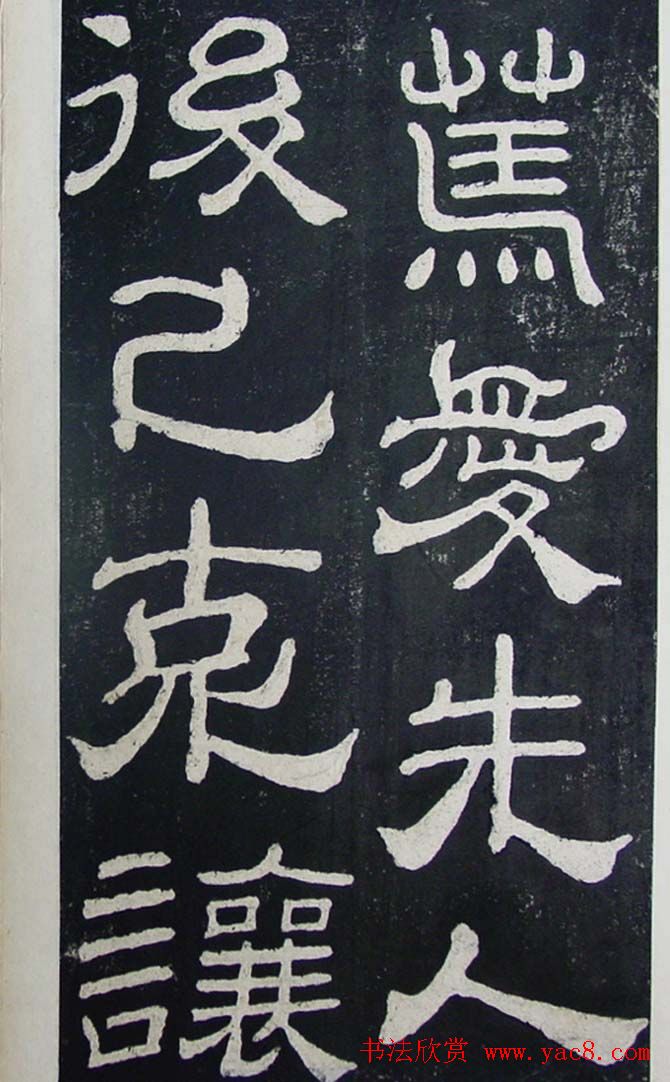 篤愛先人
後己克讓
书法欣赏 www.yac8.com